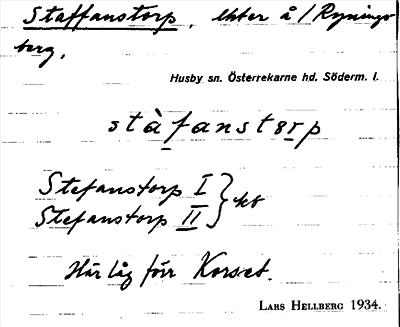 Staffanstorp, lhter å / Rynings-
berg,
Husby sn. Österrekarne hd. Söderm. l.
stàfanstɜrp
Stefanstorp I
Stefanstorp II } kb
Här låg förr Korset.
LARS HELLBERG 1934.